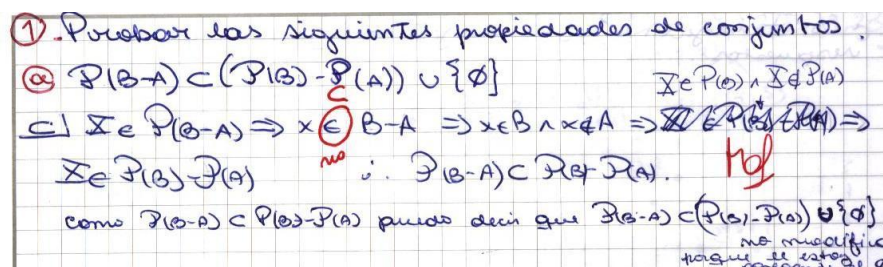 ① Probar las siguientes propiedades de conjuntos.
ⓐ P(B-A) ⊂ (P(B) - P(A)) ∪ {∅}
X ∈ P(B) ∧ X ∉ P(A)
⊂
⊂] X ∈ P(B-A) ⟹ x ∈ B-A ⟹ x ∈ B ∧ x ∉ A ⟹ ⟹
no
X ∈ P(B) - P(A) ∴ P(B-A) ⊂ P(B) - P(A).
como P(B-A) ⊂ P(B) - P(A) puedo decir que P(B-A) ⊂ (P(B) - P(A)) ∪ {∅}
no modifica
porque le estoy